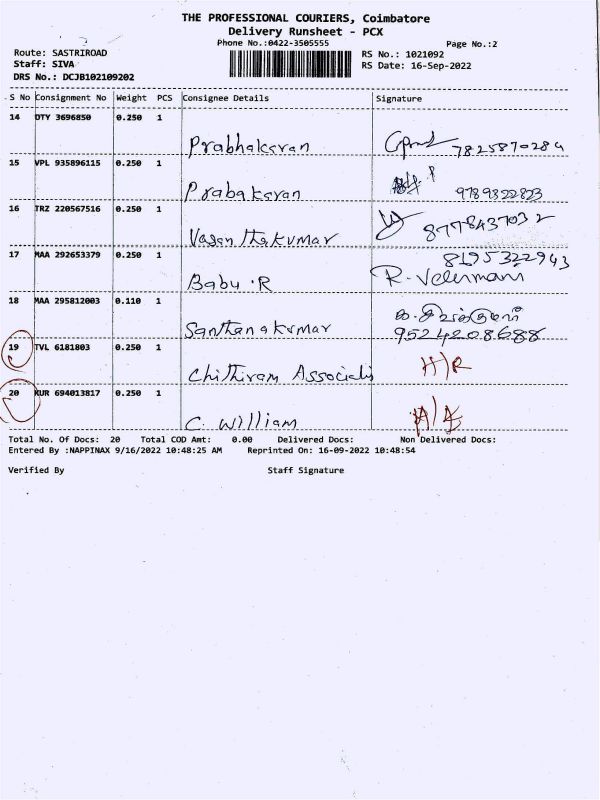 THE PROFESSIONAL COURIERS, Coimbatore
Delivery Runsheet - PCX
Phone No.:0422-3505555
Page No.:2
Route: SASTRIROAD
RS No.: 1021092
Staff: SIVA
RS Date: 16-Sep-2022
DRS No.: DCJB102109202
S No Consignment No Weight PCS Consignee Details Signature
14 DTY 3696850 0.250 1
Prabhakaran 7825870284
15 VPL 935896115 0.250 1
Prabakaran 9789322823
16 TRZ 220567516 0.250 1
Vasanthakumar 8778437032
17 MAA 292653379 0.250 1 8195322943
Babu .R R. Velermani
18 MAA 295812003 0.110 1
Santhanakumar 9524208688
19 TVL 6181803 0.250 1
Chithiram Associalis H/R
20 KUR 694013817 0.250 1
C. William
Total No. Of Docs: 20 Total COD Amt: 0.00 Delivered Docs: Non Delivered Docs:
Entered By :NAPPINAX 9/16/2022 10:48:25 AM Reprinted On: 16-09-2022 10:48:54
Verified By Staff Signature